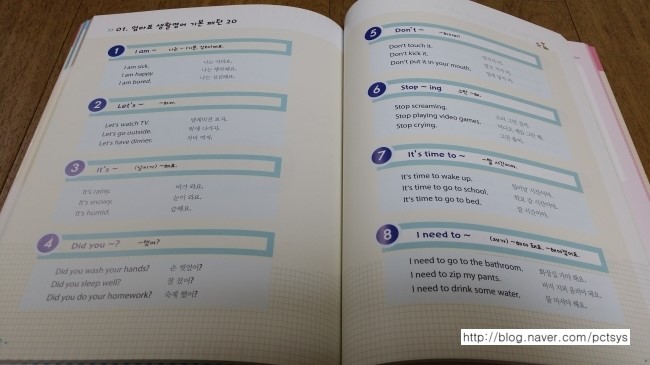 01. 엄마표 생활영어 기본 패턴 20
1 I am ~ 나는 ~
I am sick. 나는 아파요.
I am happy. 나는 행복해요.
I am bored. 나는 심심해요.
2 Let's ~ ~하자.
Let's watch TV. 텔레비전 보자.
Let's go outside. 밖에 나가자.
Let's have dinner. 저녁 먹자.
3 It's ~ (날씨가) ~해요.
It's rainy. 비가 와요.
It's snowy. 눈이 와요.
It's humid. 습해요.
4 Did you ~? ~했어?
Did you wash your hands? 손 씻었어?
Did you sleep well? 잘 잤어?
Did you do your homework? 숙제 했어?
5 Don't ~
Don't touch it. 만지지 마.
Don't kick it.
Don't put it in your mouth.
6 Stop ~ ing 그만 ~해.
Stop screaming. 소리 그만 질러.
Stop playing video games. 비디오 게임 그만 해.
Stop crying. 그만 울어.
7 It's time to ~ ~할 시간이야.
It's time to wake up. 일어날 시간이야.
It's time to go to school. 학교 갈 시간이야.
It's time to go to bed. 잘 시간이야.
8 I need to ~ (내가) ~해야 해요, ~해야겠어요.
I need to go to the bathroom. 화장실 가야 해요.
I need to zip my pants. 바지 지퍼 올려야 해요.
I need to drink some water. 물 마셔야 해요.
http://blog.naver.com/pctsys